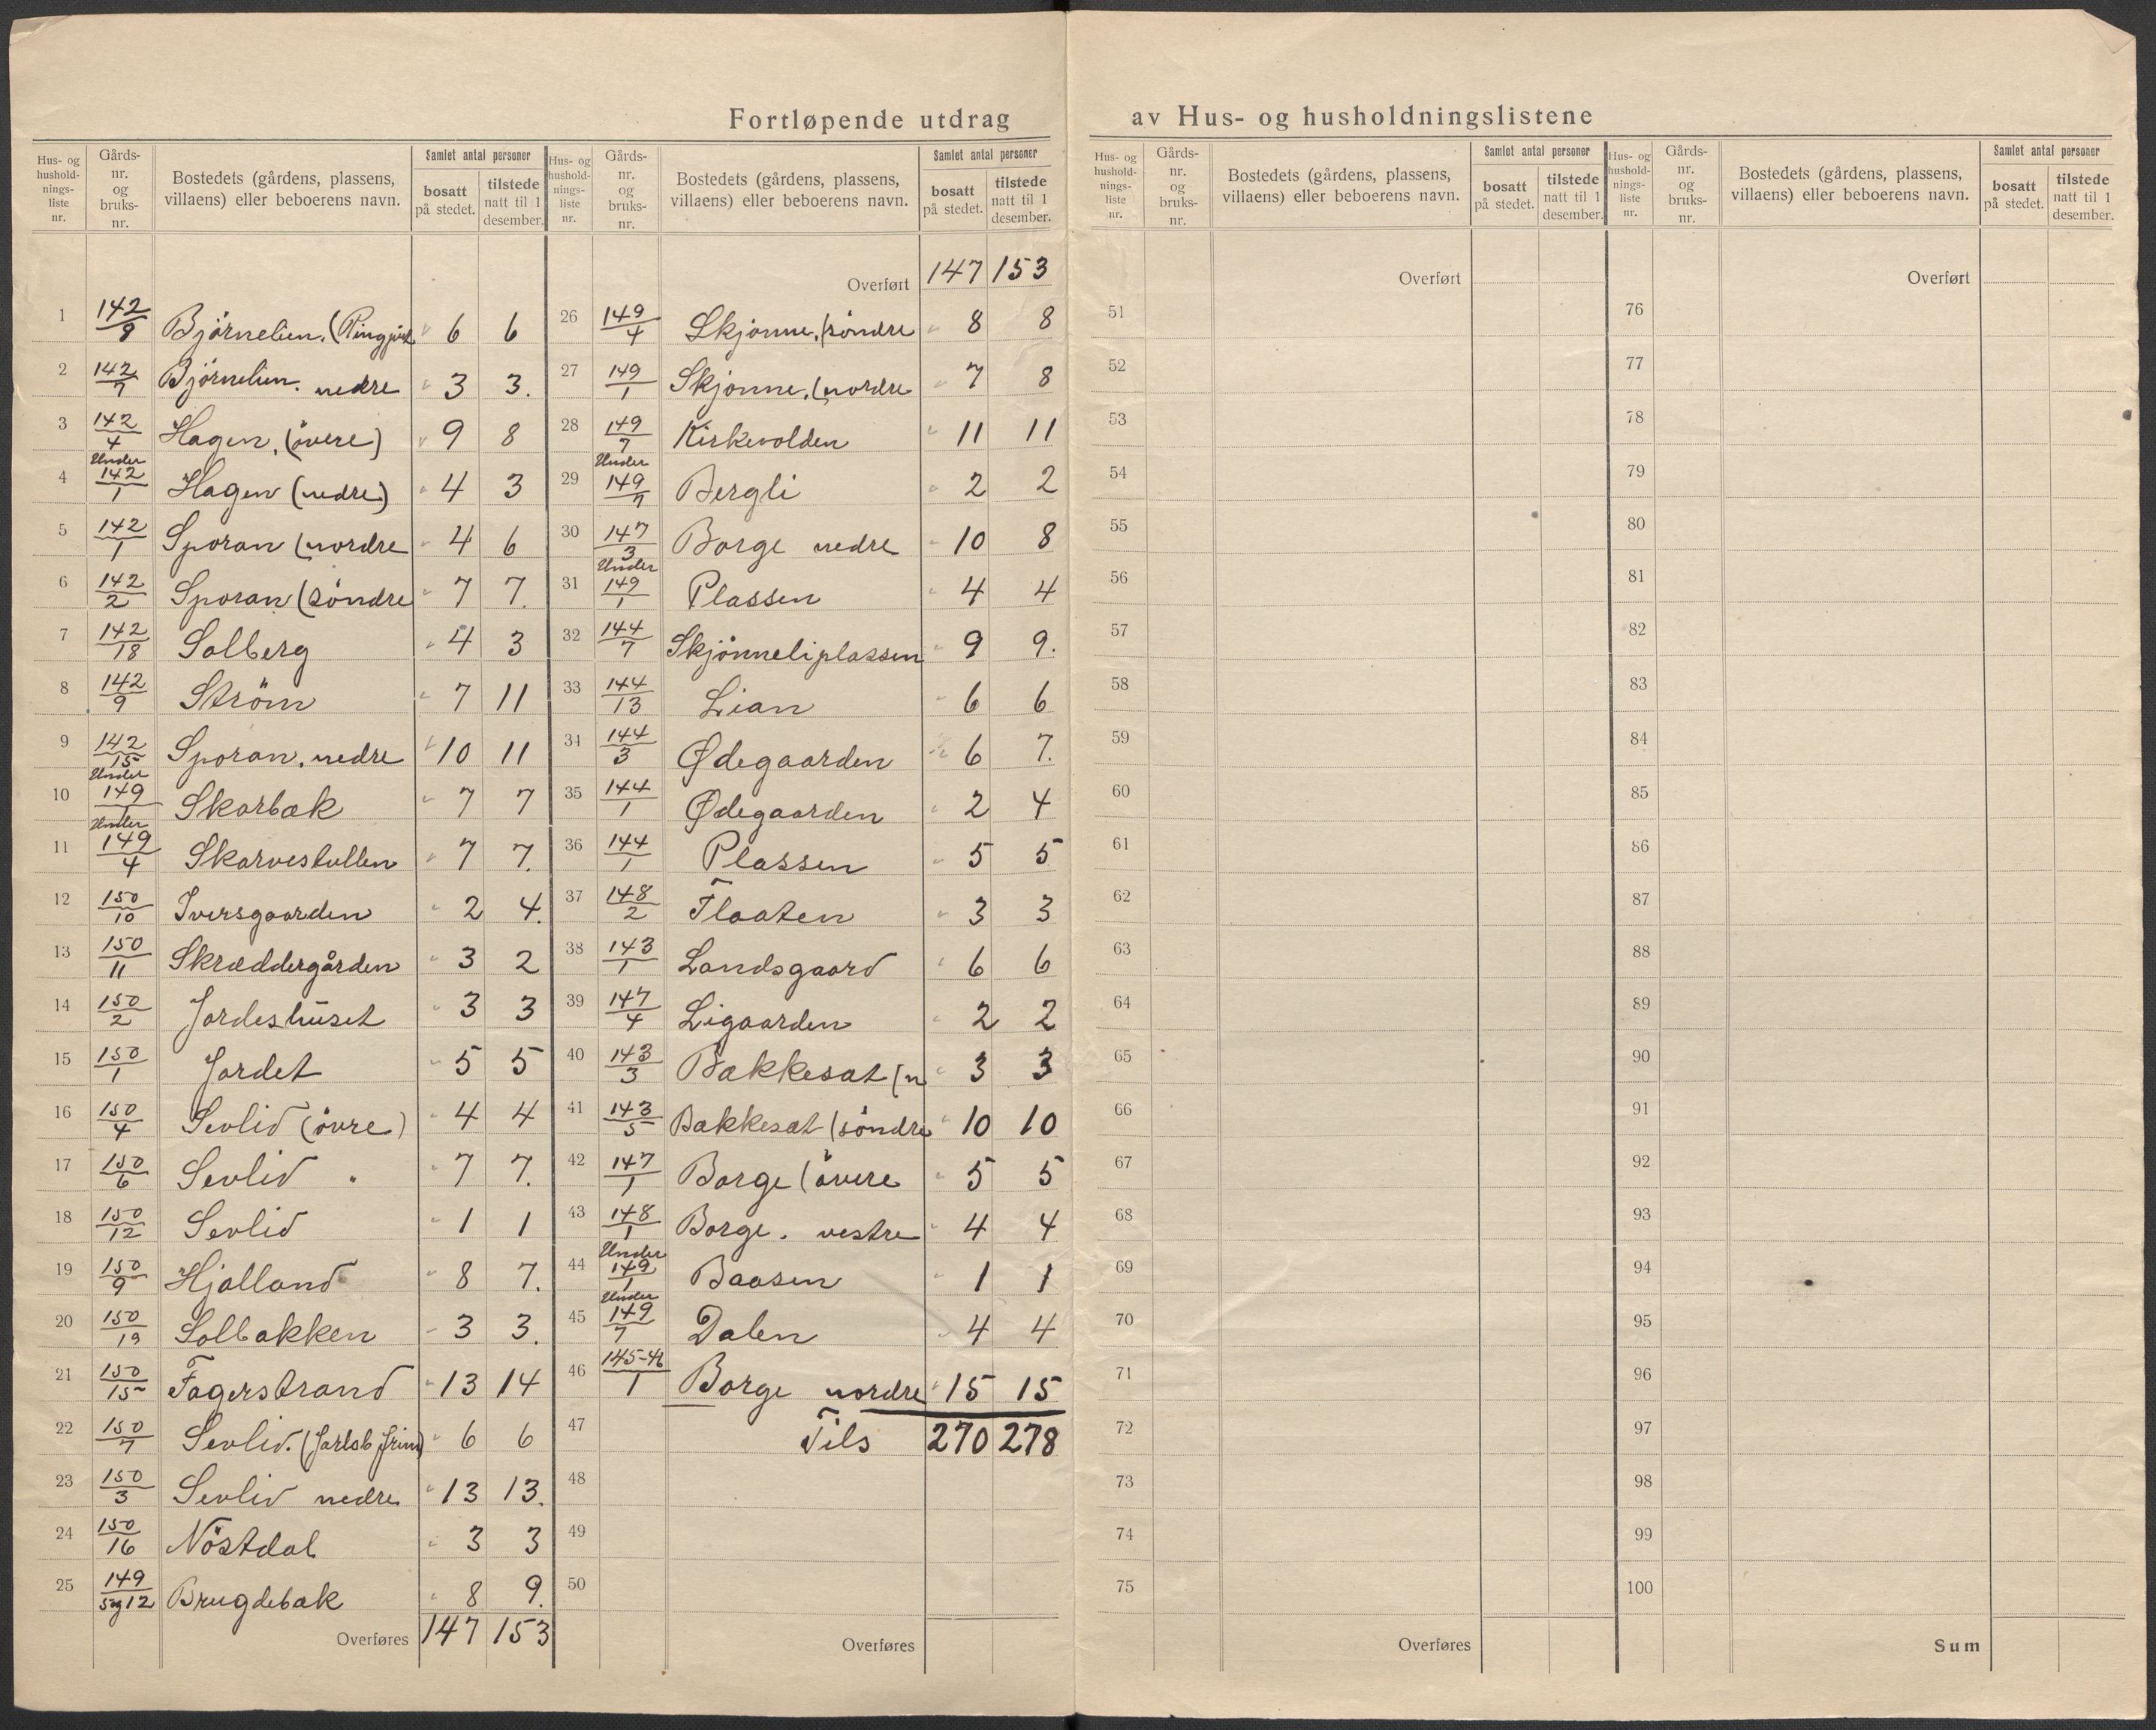 Fortløpende utdrag av Hus- og husholdningslistene
Hus- og husholdnings- liste nr. Gårds- nr. og bruks- nr. Bostedets (gårdens, plassens, villaens) eller beboerens navn. Samlet antal personer bosatt på stedet. tilstede natt til 1 desember.
1 142/8 Björnelien. 6 6
2 142/7 Björnelien. nedre 3 3.
3 142/4 Hagen, (övere) 9 8
4 Under 142/1 Hagen (nedre) 4 3
5 142/1 Sporan (nordre 4 6
6 142/2 Sporan (söndre 7 7.
7 142/18 Solberg 4 3
8 142/9 Ström 7 11
9 142/15 Sporan, nedre 10 11
10 Under 149/1 Skarbak 7 7
11 Under 149/4 Skarvestullen 7 7.
12 150/10 Iversgaarden 2 4.
13 150/11 Skræddergården 3 2
14 150/2 Jordeshuset 3 3
15 150/1 Jordet 5 5
16 150/4 Sevlid (övre) 4 4
17 150/6 Sevlid " 7 7.
18 150/12 Sevlid 1 1
19 150/9 Hjalland 8 7.
20 150/19 Solbakken 3 3.
21 150/15 Fagerstrand 13 14
22 150/7 Sevlid. 6 6
23 150/3 Sevlid nedre 13 13.
24 150/16 Nöstdal 3 3
25 149/5og12 Brugdebak 8 9.
Overføres 147 153
Hus- og husholdnings- liste nr. Gårds- nr. og bruks- nr. Bostedets (gårdens, plassens, villaens) eller beboerens navn. Samlet antal personer bosatt på stedet. tilstede natt til 1 desember.
Overført 147 153
26 149/4 Skjonne, (söndre 8 8
27 149/1 Skjonne, (nordre 7 8
28 149/7 Kirkevolden 11 11
29 Under 149/7 Bergli 2 2
30 147/3 Borge nedre 10 8
31 Under 149/1 Plassen 4 4
32 144/7 Skjönneliplassen 9 9.
33 144/13 Lian 6 6
34 144/3 Ødegaarden 6 7.
35 144/1 Ødegaarden 2 4
36 144/1 Plassen 5 5
37 148/2 Flaaten 3 3
38 143/1 Landsgaard 6 6
39 147/4 Ligaarden 2 2
40 143/3 Bakkesat (n 3 3
41 143/5 Bakkesat (söndre 10 10
42 147/1 Borge (övere 5 5
43 148/1 Borge. vestre 4 4
44 Under 149/1 Baasen 1 1
45 Under 149/7 Dalen 4 4
46 145-46/1 Borge nordre 15 15
47 Tils 270 278
48
49
50
Overføres
Hus- og husholdnings- liste nr. Gårds- nr. og bruks- nr. Bostedets (gårdens, plassens, villaens) eller beboerens navn. Samlet antal personer bosatt på stedet. tilstede natt til 1 desember.
Overført
51
52
53
54
55
56
57
58
59
60
61
62
63
64
65
66
67
68
69
70
71
72
73
74
75
Overføres
Hus- og husholdnings- liste nr. Gårds- nr. og bruks- nr. Bostedets (gårdens, plassens, villaens) eller beboerens navn. Samlet antal personer bosatt på stedet. tilstede natt til 1 desember.
Overført
76
77
78
79
80
81
82
83
84
85
86
87
88
89
90
91
92
93
94
95
96
97
98
99
100
Sum